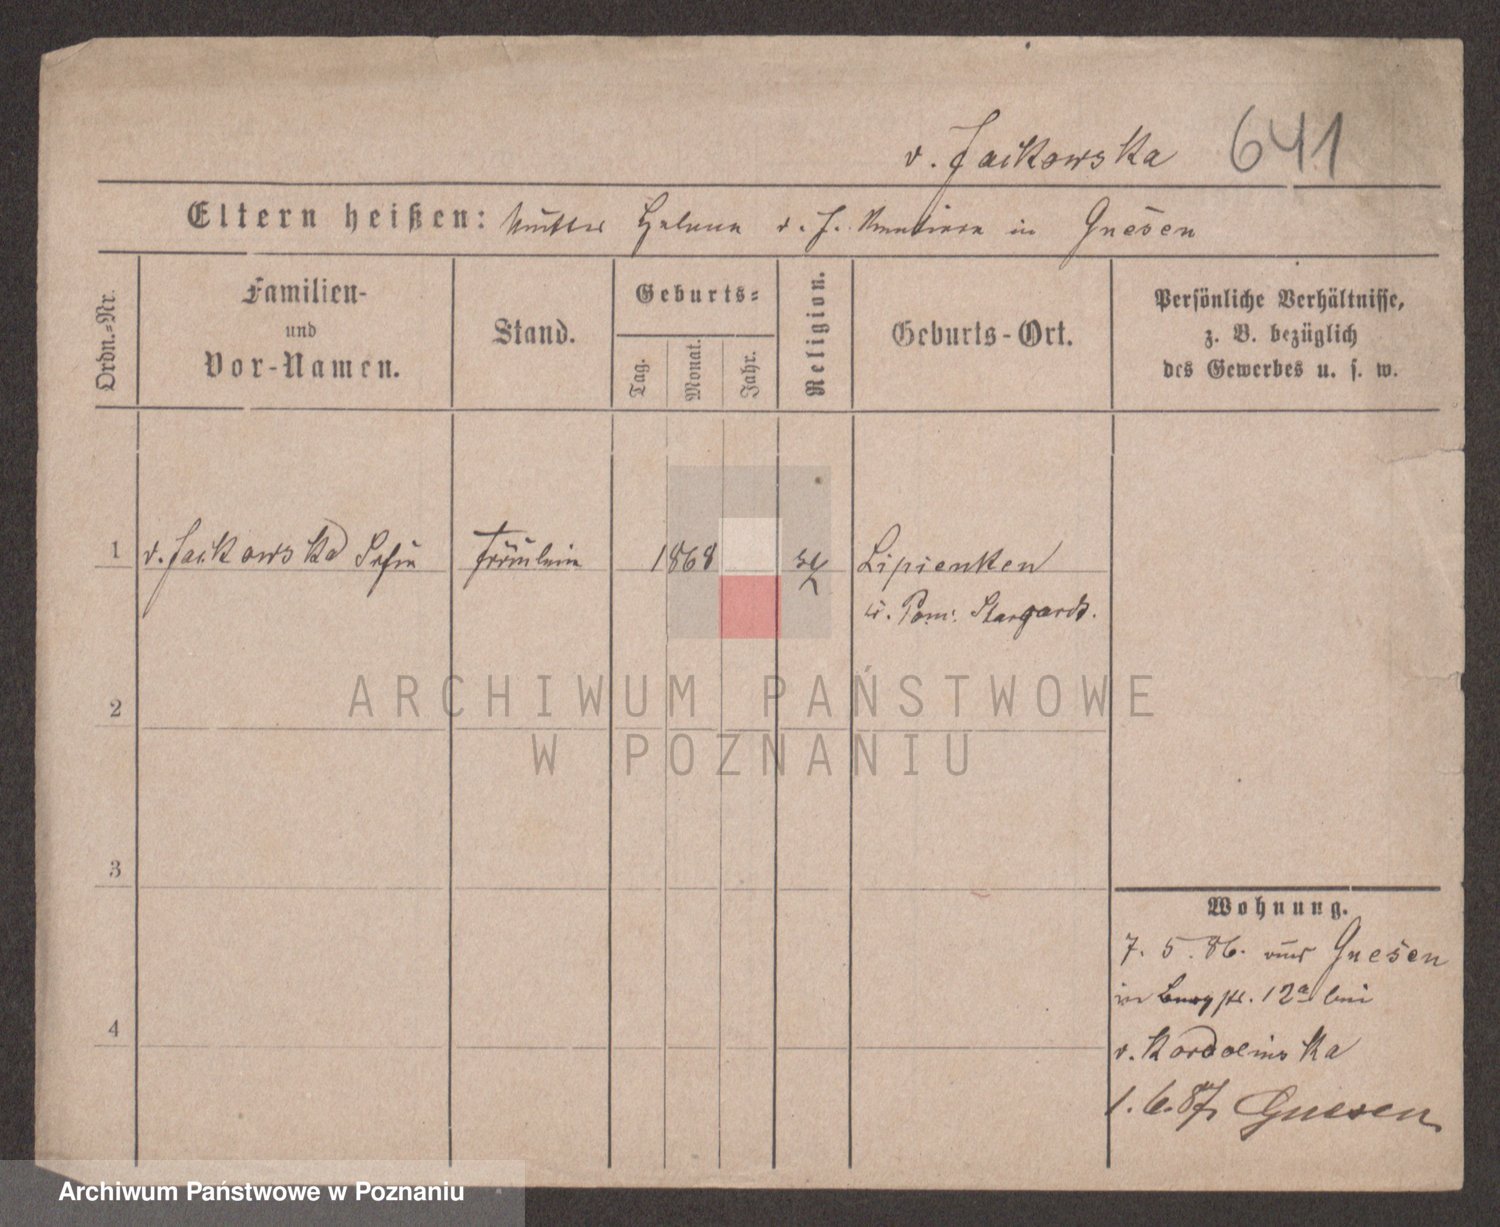 v. Jackowska 641
Eltern heißen: Mutter Helena v. J. Rentiere in Gnesen
Ordn.=Nr.
Familien-
und
Vor-Namen.
Stand.
Geburts=
Tag.
Monat.
Jahr.
Religion.
Geburts-Ort.
Persönliche Verhältnisse,
z. B. bezüglich
des Gewerbes u. s. w.
1 v. Jackowska Sofie Fräulein 1868 Lipienken
Stargardt.
2
3
4
ARCHIWUM PAŃSTWOWE
W POZNANIU
Wohnung.
7. 5. 86. aus Gnesen
in Burgstr. 12a bei
v.
1. 6. 87. Gnesen
Archiwum Państwowe w Poznaniu